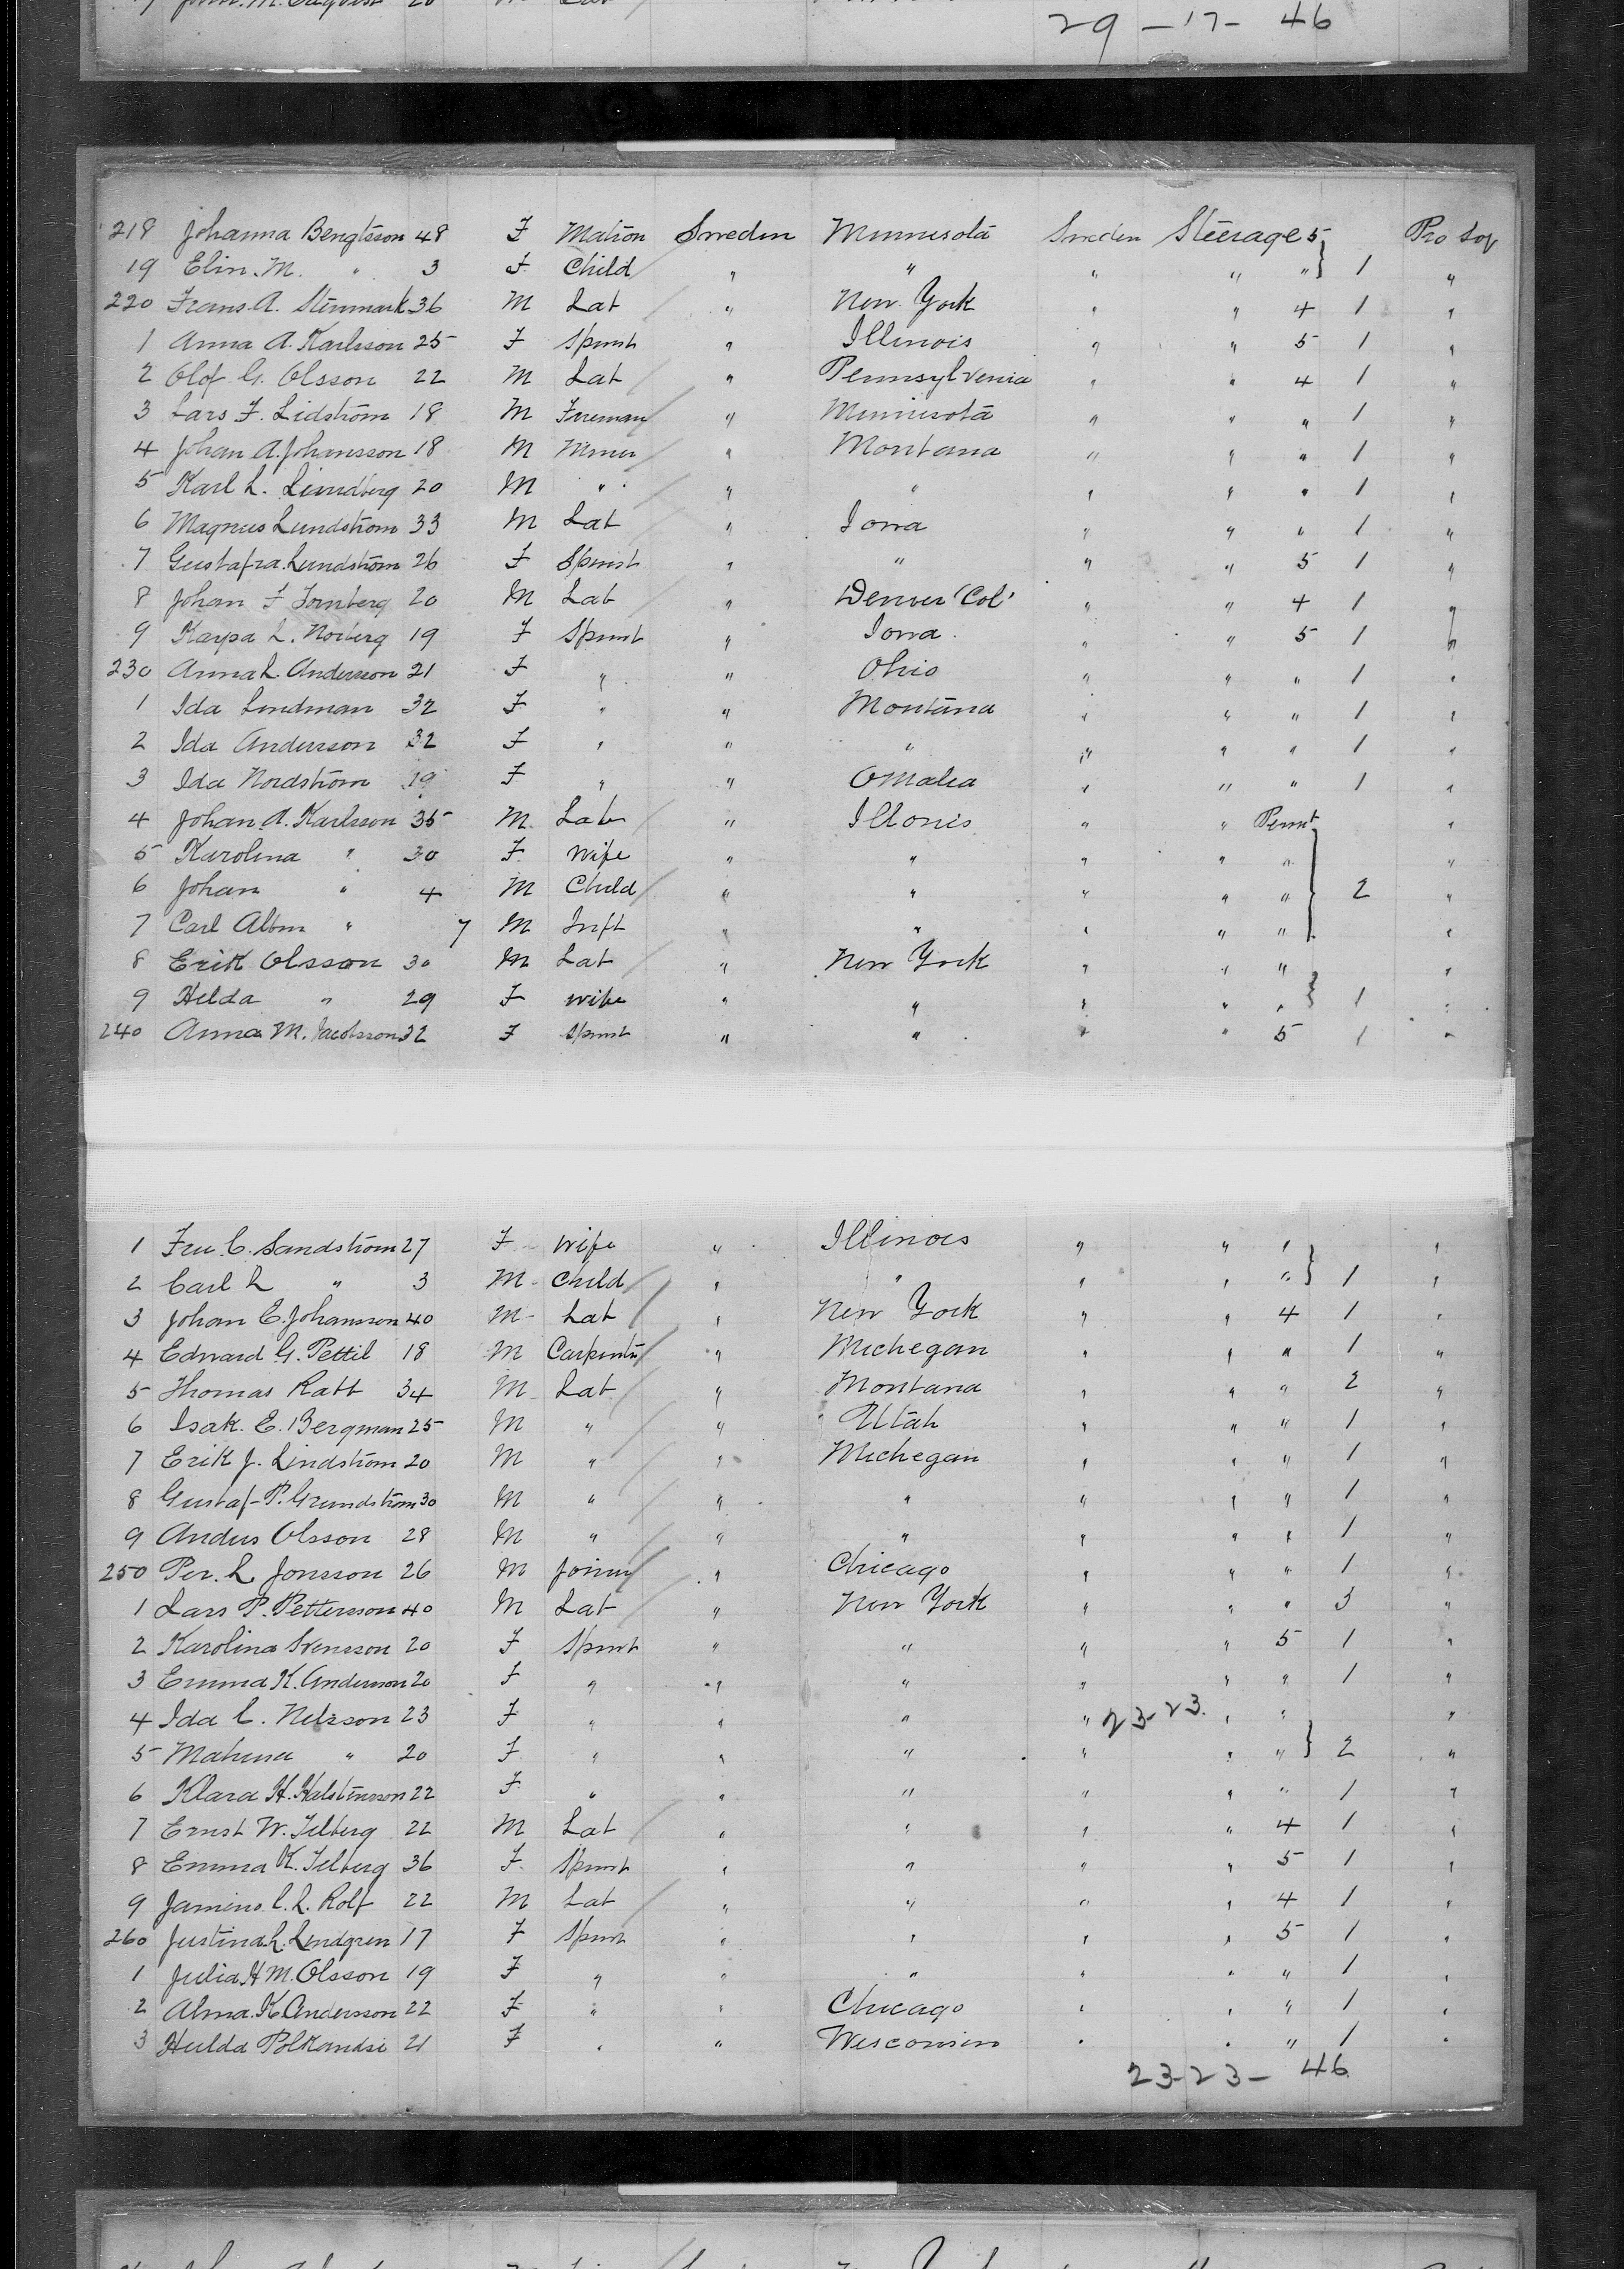 29 - 17 - 46
218 Johanna Bengtsson 48 F Matron Sweden Minnesota Sweden Steerage 5 Pro Soj
19 Elin. M. " 3 F Child " " " " " } 1 "
220 Frans. A. Stenmark 36 M Lab " New York " " 4 1 "
1 Anna A. Karlsson 25 F Spinst " Illinois " " 5 1 "
2 Olof G. Olsson 22 M Lab " Pennsylvenia " " 4 1 "
3 Lars F. Lidström 18 M Fireman " Minnesota " " " 1 "
4 Johan A. Johansson 18 M Miner " Montana " " " 1 "
5 Karl L. Lundberg 20 M " " " " " " 1 "
6 Magnus Lundström 33 M Lab " Iowa " " " 1 "
7 Gustafva Lundström 26 F Spinst " " " " 5 1 "
8 Johan F Fornberg 20 M Lab " Denver 'Col' " " 4 1 "
9 L. Norberg 19 F Spinst " Iowa. " " 5 1 "
230 Anna L. Anderson 21 F " " Ohio " " " 1 "
1 Ida Lindman 32 F " " Montana " " " 1 "
2 Ida Anderson 32 F " " " " " " 1 "
3 Ida Nordström 19 F " " Omaha " " " 1 "
4 Johan A. Karlsson 35 M. Lab " Illonis " " Permt "
5 Karolina " 30 F. Wife " " " " " "
6 Johan " 4 M Child " " " " " } 2 "
7 Carl Albin " 7 M Inft " " " " " "
8 Erik Olsson 30 M Lab " New York " " " "
9 Hilda " 29 F wife " " " " " } 1 "
240 Anna M. Jacobsson 32 F Spinst " " " " 5 1 "
1 Fru C. Sandström 27 F Wife " Illinois " " " "
2 Carl L " 3 M Child " " " " " } 1 "
3 Johan E. Johansson 40 M Lab " New York " " 4 1 "
4 Edward G. Pettil 18 M Carpenter " Michegan " " " 1 "
5 Thomas Ratt 34 M Lab " Montana " " " 2 "
6 Isak. E. Bergman 25 M " " Utah " " " 1 "
7 Erik J. Lindström 20 M " " Michegan " " " 1 "
8 Gustaf P. Grundström 30 M " " " " " " 1 "
9 Anders Olsson 28 M " " " " " " 1 "
250 Per. L Jonsson 26 M Joiner " Chicago " " " 1 "
1 Lars P. Pettersson 40 M Lab " New York " " " 3 "
2 Karolina Svensson 20 F Spinst " " " " 5 1 "
3 Emma K. Anderson 20 F " " " " " " 1 "
4 Ida C. Nelsson 23 F " " " " 23-23. " " "
5 " 20 F. " " " " " " } 2 "
6 Klara H. Halstensson 22 F " " " " " " 1 "
7 Ernst W. Telberg 22 M Lab " " " " 4 1 "
8 Emma K. Telberg 36 F. Spinst " " " " 5 1 "
9 C. L. Rolf 22 M Lab " " " " 4 1 "
260 Justina L. Lindgren 17 F Spinst " " " " 5 1 "
1 Julia H M. Olsson 19 F " " " " " " 1 "
2 Alma. K. Andersson 22 F " " Chicago " " " 1 "
3 Hulda 21 F " " Wesconsin " " " 1 "
23-23- 46